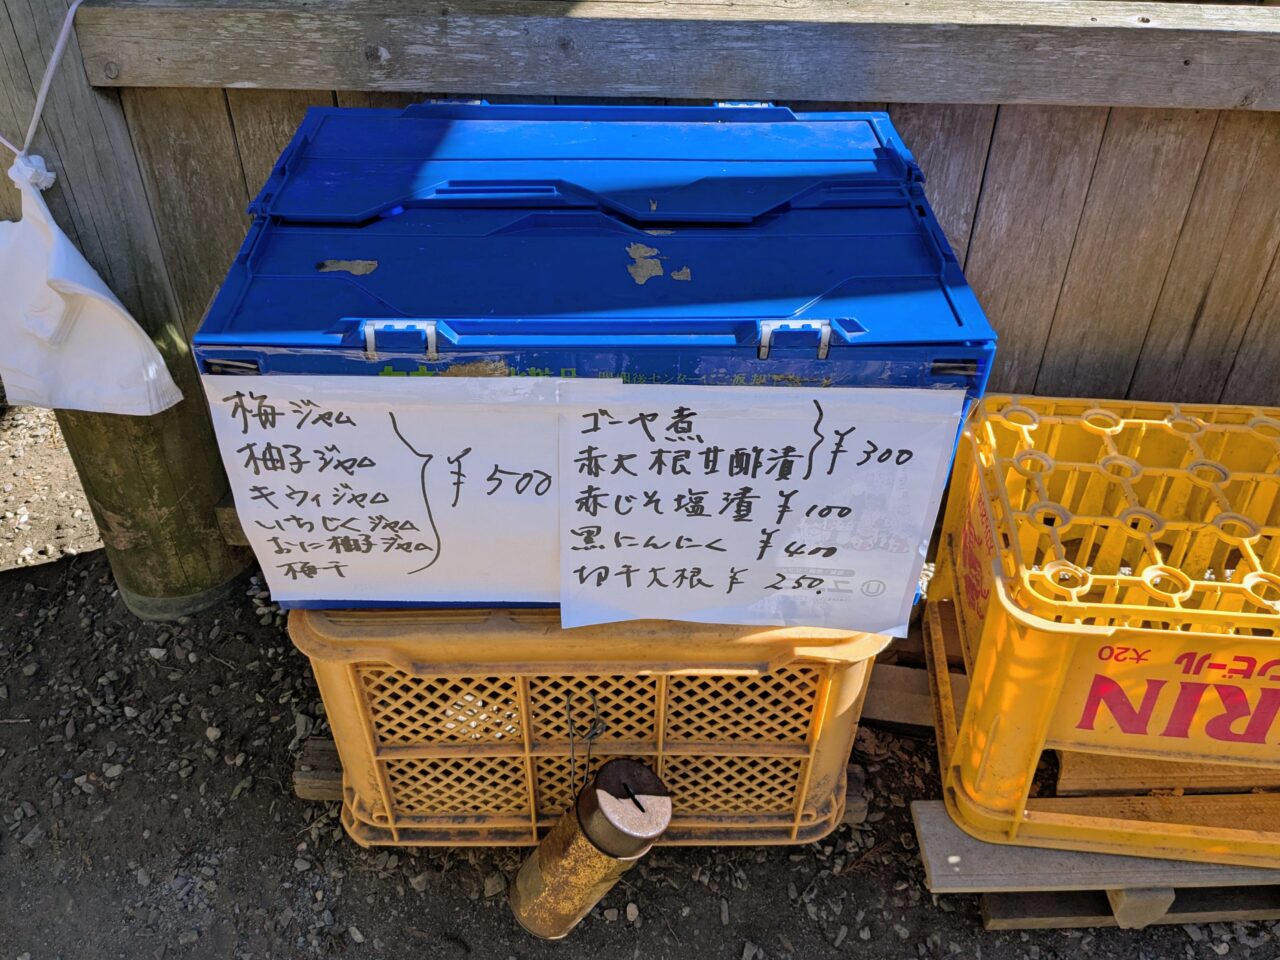 梅ジャム
柚子ジャム
キウィジャム
いちじくジャム
おに柚子ジャム
梅干
¥500
ゴーヤ煮
赤大根甘酢漬
¥300
赤じそ塩漬 ¥100
黒にんにく ¥400
切干大根 ¥250.
ンビール 大20
RIN